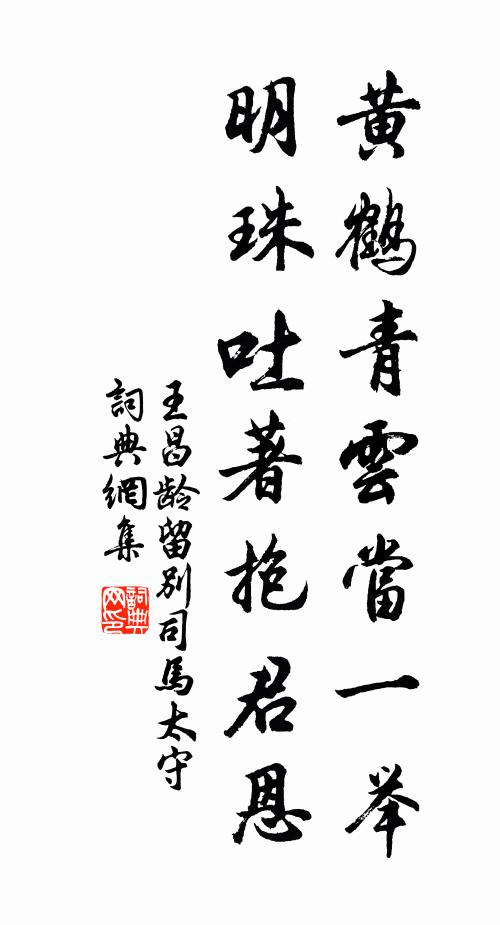 黄鶴青雲當一举
明珠吐著抱君恩
王昌龄留別司馬太守
詞典網集
詞典网印